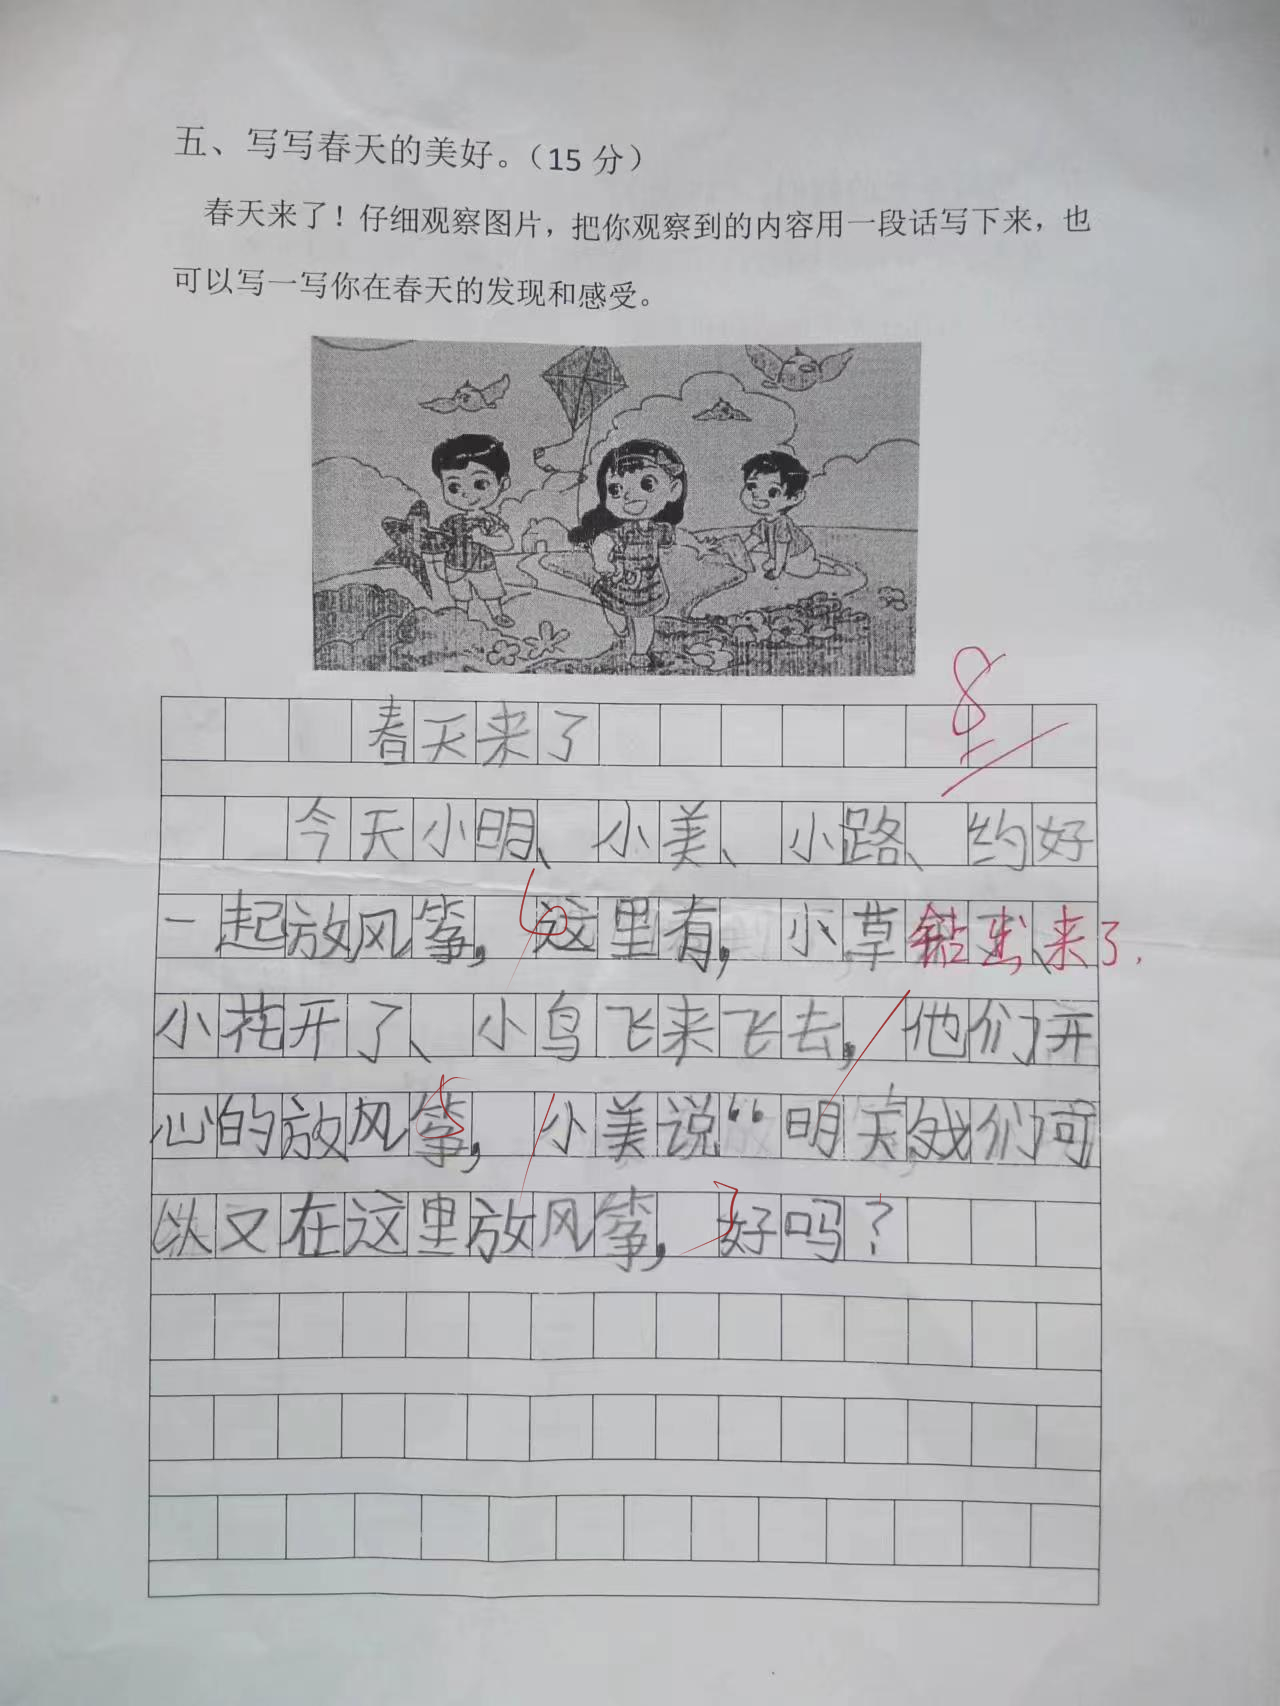 五、写写春天的美好。（15 分）
春天来了！仔细观察图片，把你观察到的内容用一段话写下来，也
可以写一写你在春天的发现和感受。
8
春天来了
今天小明、小美、小路、约好
一起放风筝，这里有，小草钻出来了，
小花开了、小鸟飞来飞去，他们开
心的放风筝，小美说“明天我们可
以又在这里放风筝，好吗？